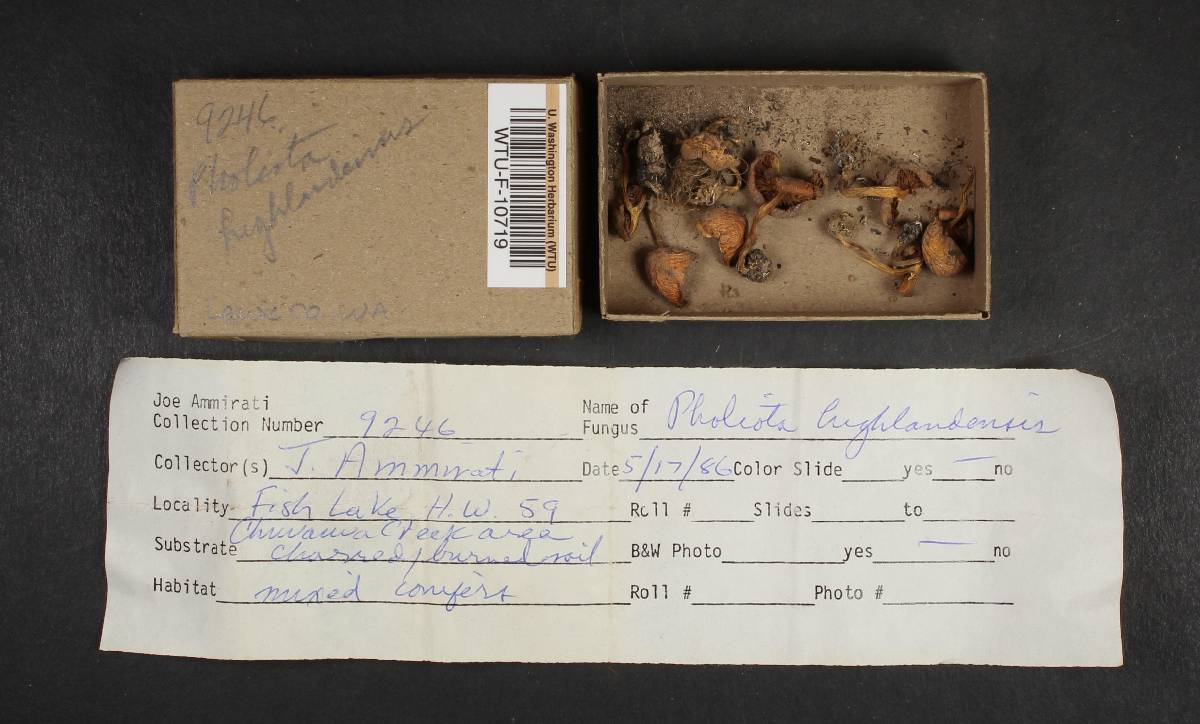 9246
Pholiota
highlandensis
WA
U. Washington Herbarium (WTU)
WTU-F-10719
Joe Ammirati
Collection Number 9246
Name of Fungus Pholiota highlandensis
Collector(s) J. Ammirati Date 5/17/86 Color Slide yes — no
Locality Fish Lake H.W. 59 Roll # Slides to
Chiwawa Creek area
Substrate charred/burned soil B&W Photo yes — no
Habitat mixed conifers Roll # Photo #